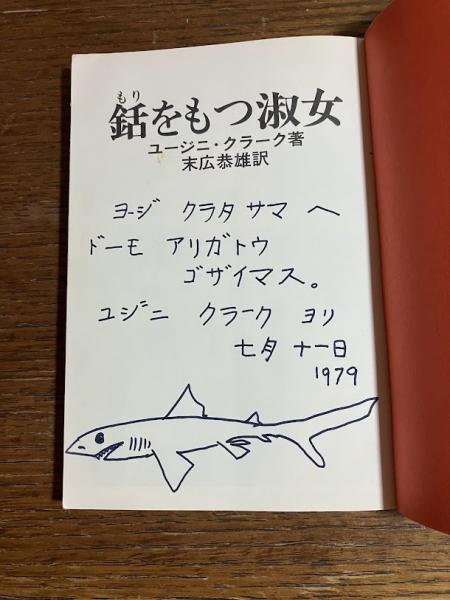 もり
銛をもつ淑女
ユージニ・クラーク著
末広恭雄訳
ヨージ クラタ サマ へ
ドーモ アリガトウ
ゴザイマス。
ユジニ クラーク ヨリ
七月 十一日
1979